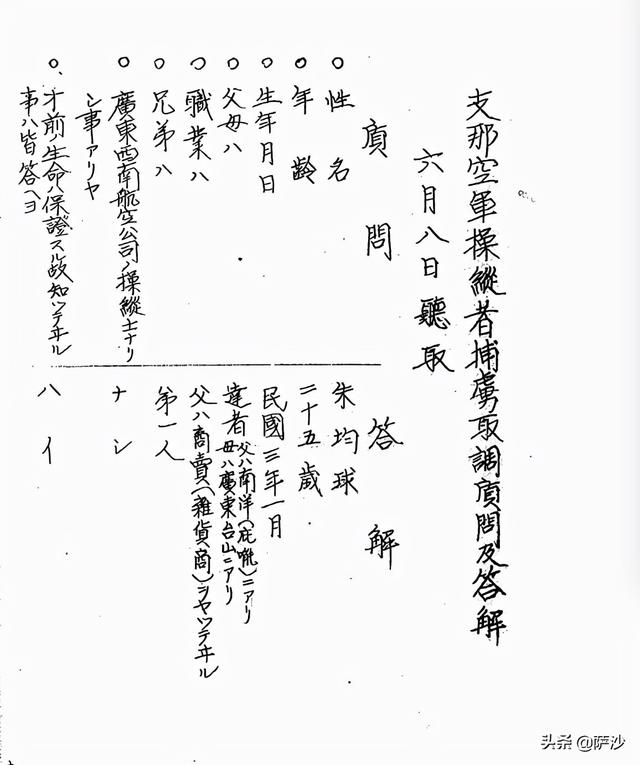 支那空軍操縱者捕虜取調質問及答解
六月八日聽取
質問
答解
○性名
朱均球
○年齡
二十五歲
○生年月日
民國三年一月
○父母ハ
達者父ハ南洋(庇能)ニアリ
母ハ廣東台山ニアリ
○職業ハ
父ハ商賣(雜貨商)ヲヤツテヰル
○兄弟ハ
弟一人
○廣東西南航空公司ノ操縱士ナリ
シ事アリヤ
ナシ
○、才前生命ハ保證スル故知ツテヰル
事ハ皆答ヘヨ
ハイ
头条 @萨沙